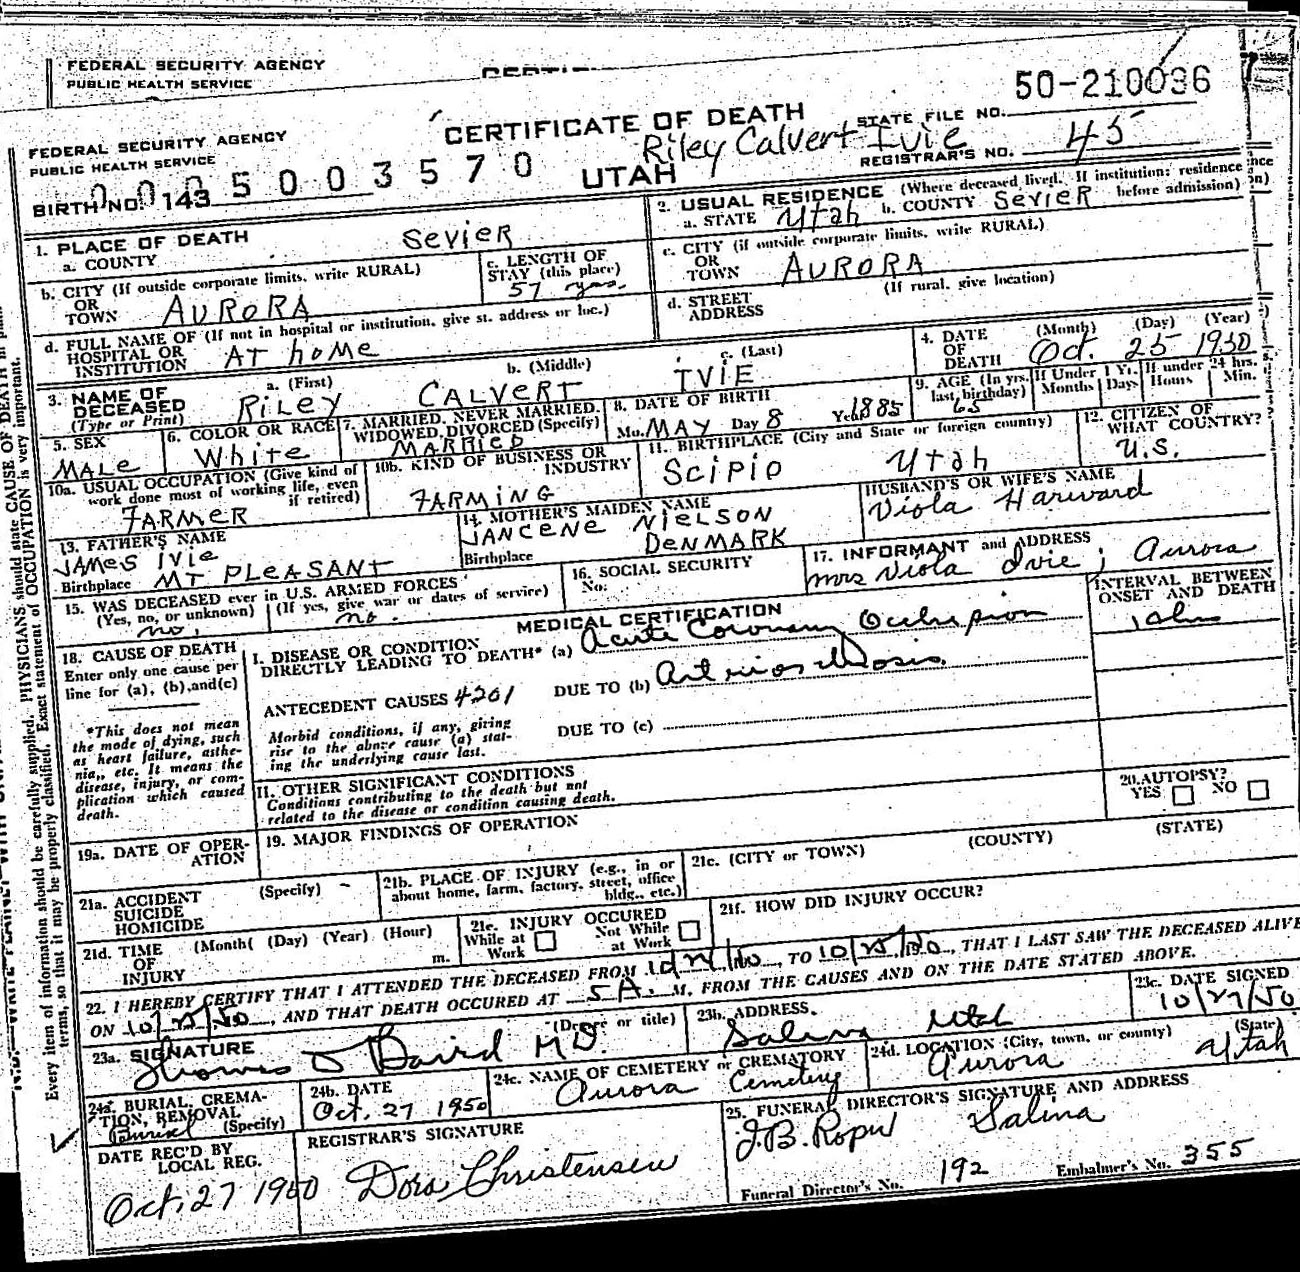 FEDERAL SECURITY AGENCY
PUBLIC HEALTH SERVICE
50-210036
FEDERAL SECURITY AGENCY
PUBLIC HEALTH SERVICE
CERTIFICATE OF DEATH
STATE FILE NO.
Riley Calvert Ivie
REGISTRAR'S NO. 45
UTAH
BIRTH NO. 143
0005003570
1. PLACE OF DEATH
a. COUNTY SEVIER
2. USUAL RESIDENCE (Where deceased lived. If institution: residence before admission)
a. STATE Utah b. COUNTY SEVIER
b. CITY (If outside corporate limits, write RURAL)
OR
TOWN AURORA
c. LENGTH OF
STAY (this place)
57 yrs.
c. CITY (if outside corporate limits, write RURAL)
OR
TOWN AURORA
d. FULL NAME OF (If not in hospital or institution, give st. address or loc.)
HOSPITAL OR
INSTITUTION AT HOME
d. STREET
ADDRESS
(If rural, give location)
3. NAME OF
DECEASED
(Type or Print)
a. (First) b. (Middle) c. (Last)
RILEY CALVERT IVIE
4. DATE
OF
DEATH
(Month) (Day) (Year)
Oct. 25 1950
5. SEX
MALE
6. COLOR OR RACE
White
7. MARRIED, NEVER MARRIED,
WIDOWED, DIVORCED (Specify)
MARRIED
8. DATE OF BIRTH
Mo. MAY Day 8 Year 1885
9. AGE (In yrs.
last birthday)
65
If Under 1 Yr.
Months Days
If under 24 hrs.
Hours Min.
10a. USUAL OCCUPATION (Give kind of
work done most of working life, even
if retired)
FARMER
10b. KIND OF BUSINESS OR
INDUSTRY
FARMING
11. BIRTHPLACE (City and State or foreign country)
SCIPIO Utah
12. CITIZEN OF
WHAT COUNTRY?
U.S.
13. FATHER'S NAME
JAMES IVIE
Birthplace MT PLEASANT
14. MOTHER'S MAIDEN NAME
JANCENE NIELSON
Birthplace DENMARK
HUSBAND'S OR WIFE'S NAME
Viola Harward
15. WAS DECEASED ever in U.S. ARMED FORCES?
(Yes, no, or unknown) (If yes, give war or dates of service)
no. no.
16. SOCIAL SECURITY
No:
17. INFORMANT and ADDRESS
Mrs Viola Ivie; Aurora
MEDICAL CERTIFICATION
INTERVAL BETWEEN
ONSET AND DEATH
18. CAUSE OF DEATH
Enter only one cause per
line for (a), (b), and (c)
*This does not mean
the mode of dying, such
as heart failure, asthe-
nia, etc. It means the
disease, injury, or com-
plication which caused
death.
I. DISEASE OR CONDITION
DIRECTLY LEADING TO DEATH* (a) Acute Coronary Occlusion
ANTECEDENT CAUSES 4201 DUE TO (b) Arteriosclerosis
Morbid conditions, if any, giving
rise to the above cause (a) stat-
ing the underlying cause last.
DUE TO (c)
II. OTHER SIGNIFICANT CONDITIONS
Conditions contributing to the death but not
related to the disease or condition causing death.
20. AUTOPSY?
YES NO
19a. DATE OF OPER-
ATION
19. MAJOR FINDINGS OF OPERATION
21a. ACCIDENT (Specify) -
SUICIDE
HOMICIDE
21b. PLACE OF INJURY (e.g., in or
about home, farm, factory, street, office
bldg., etc.)
21c. (CITY or TOWN) (COUNTY) (STATE)
21d. TIME (Month( (Day) (Year) (Hour)
OF
INJURY m.
21e. INJURY OCCURED
While at Work Not While at Work
21f. HOW DID INJURY OCCUR?
22. I HEREBY CERTIFY THAT I ATTENDED THE DECEASED FROM 10/24/50, TO 10/25/50, THAT I LAST SAW THE DECEASED ALIVE
ON 10/25/50, AND THAT DEATH OCCURED AT 5 A. M, FROM THE CAUSES AND ON THE DATE STATED ABOVE.
23a. SIGNATURE (Degree or title)
Thomas J Baird MD.
23b. ADDRESS.
Salina Utah
23c. DATE SIGNED
10/27/50
24a. BURIAL, CREMA-
TION, REMOVAL
(Specify) Burial
24b. DATE
Oct. 27 1950
24c. NAME OF CEMETERY or CREMATORY
Aurora Cemetery
24d. LOCATION (City, town, or county) (State)
Aurora Utah
DATE REC'D BY
LOCAL REG.
Oct. 27 1950
REGISTRAR'S SIGNATURE
Dora Christensen
25. FUNERAL DIRECTOR'S SIGNATURE AND ADDRESS
Salina
Funeral Director's No. 192 Embalmer's No. 355
Every item of information should be carefully supplied. PHYSICIANS should state CAUSE OF DEATH in plain
terms, so that it may be properly classified. Exact statement of OCCUPATION is very important.